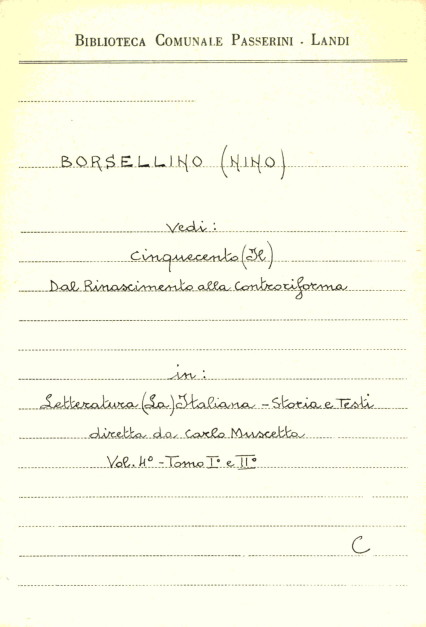 BIBLIOTECA COMUNALE PASSERINI - LANDI
BORSELLINO (NINO)
Vedi:
Cinquecento (Il)
Dal Rinascimento alla Controriforma
in:
Letteratura (La) Italiana - Storia e Testi
diretta da Carlo Muscetta
Vol. 4° - Tomo I° e II°
C